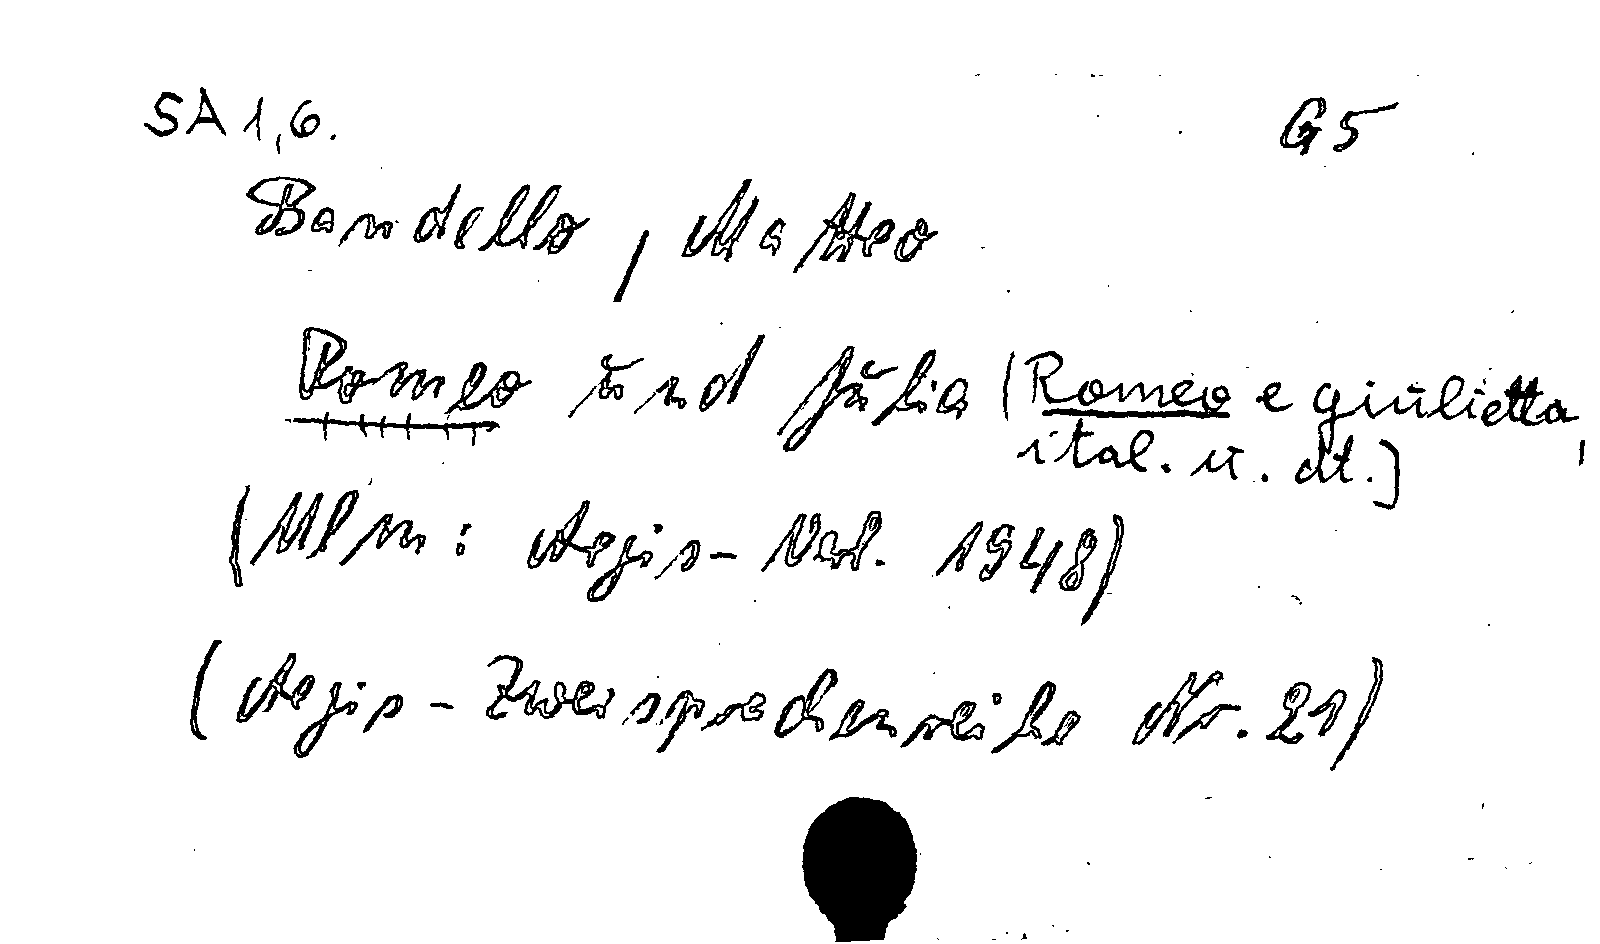 SA 1,6. G5
Bandello, Matteo
Romeo und Julia (Romeo e giulietta,
ital. u. dt.]
(Ulm: Aegis-Verl. 1948)
(Aegis-Zweisprachenreihe Nr. 21)